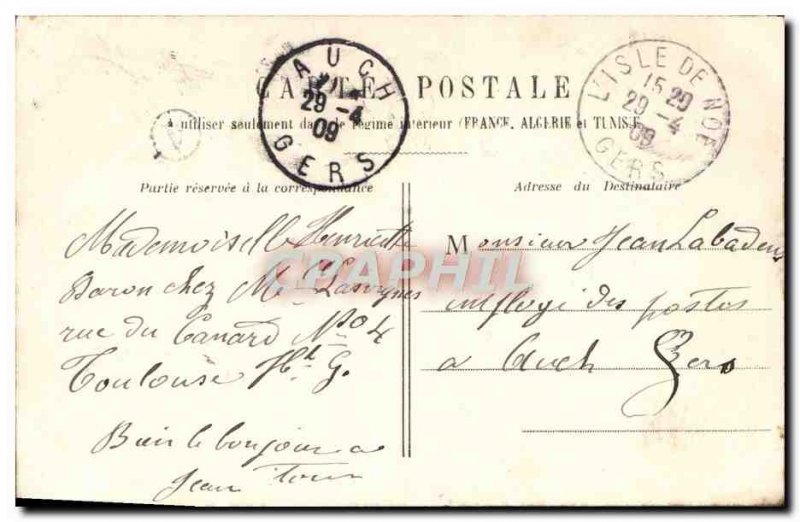 CARTE POSTALE
à utiliser seulement dans le régime intérieur (FRANCE, ALGERIE et TUNISIE
AUCH
29 -4
09
GERS
L'ISLE DE NOE
15 29
29 -4
09
GERS
Partie réservée à la correspondance
Adresse du Destinataire
Mademoiselle Henriette
Baron chez Mr
rue du Canard No 4
Toulouse Hte G.
Bien le bonjour a
Jean
Monsieur Jean Labadens
employé des postes
a Auch Gers
CPAPHIL